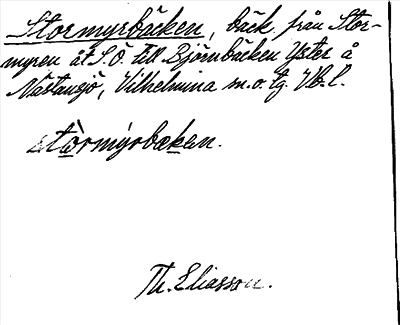 Stormyrbäcken, bäck, från Stor-
myren åt S.Ö. till Björnbäcken Yster å
Nästansjö, Vilhelmina sn. o. tg. Vb. l.
stòrmýrbäken.
Th. Eliasson.